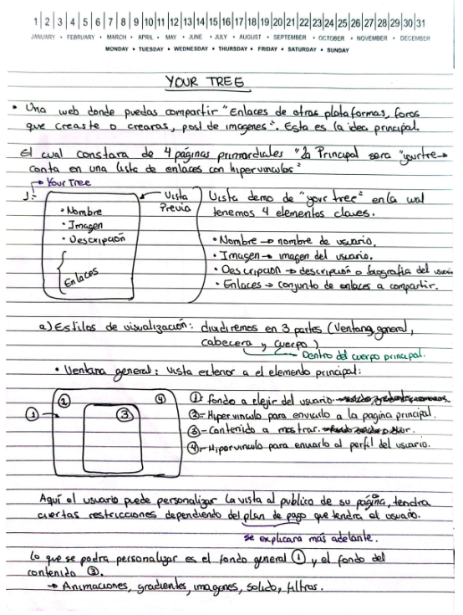 1 2 3 4 5 6 7 8 9 10 11 12 13 14 15 16 17 18 19 20 21 22 23 24 25 26 27 28 29 30 31
JANUARY • FEBRUARY • MARCH • APRIL • MAY • JUNE • JULY • AUGUST • SEPTEMBER • OCTOBER • NOVEMBER • DECEMBER
MONDAY • TUESDAY • WEDNESDAY • THURSDAY • FRIDAY • SATURDAY • SUNDAY
YOUR TREE
• Una web donde puedas compartir "Enlaces de otras plataformas, foros
que creaste o crearas, post de imagenes". Esta es la idea principal.
El cual constara de 4 páginas primordiales "la Principal sera "yourtree→
conta en una lista de enlaces con hipervinculos"
→ Your Tree
1:-
• Nombre
• Imagen
• Descripción
Enlaces
Vista
Previa
Vista demo de "your tree" en la cual
tenemos 4 elementos claves.
• Nombre → nombre de usuario.
• Imagen → imagen del usuario.
• Descripción → descripción o biografia del
• Enlaces → conjunto de enlaces a compartir.
a) Estilos de visualización: dividiremos en 3 partes (Ventana general,
cabecera y cuerpo)
Dentro del cuerpo principal.
• Ventana general: Vista exterior a el elemento principal:
① ② ③ ④
① fondo a elejir del usuario
②- Hipervinculo para enviarlo a la pagina principal.
③- Contenido a mostrar.
④- Hipervinculo para enviarlo al perfil del usuario.
Aquí el usuario puede personalizar la vista al publico de su página, tendra
ciertas restricciones dependiendo del plan de pago que tendra el usuario.
se explicara más adelante.
Lo que se podra personalizar es el fondo general ① y el fondo del
contenido ③.
→ Animaciones, gradientes, imagenes, solido, filtros.